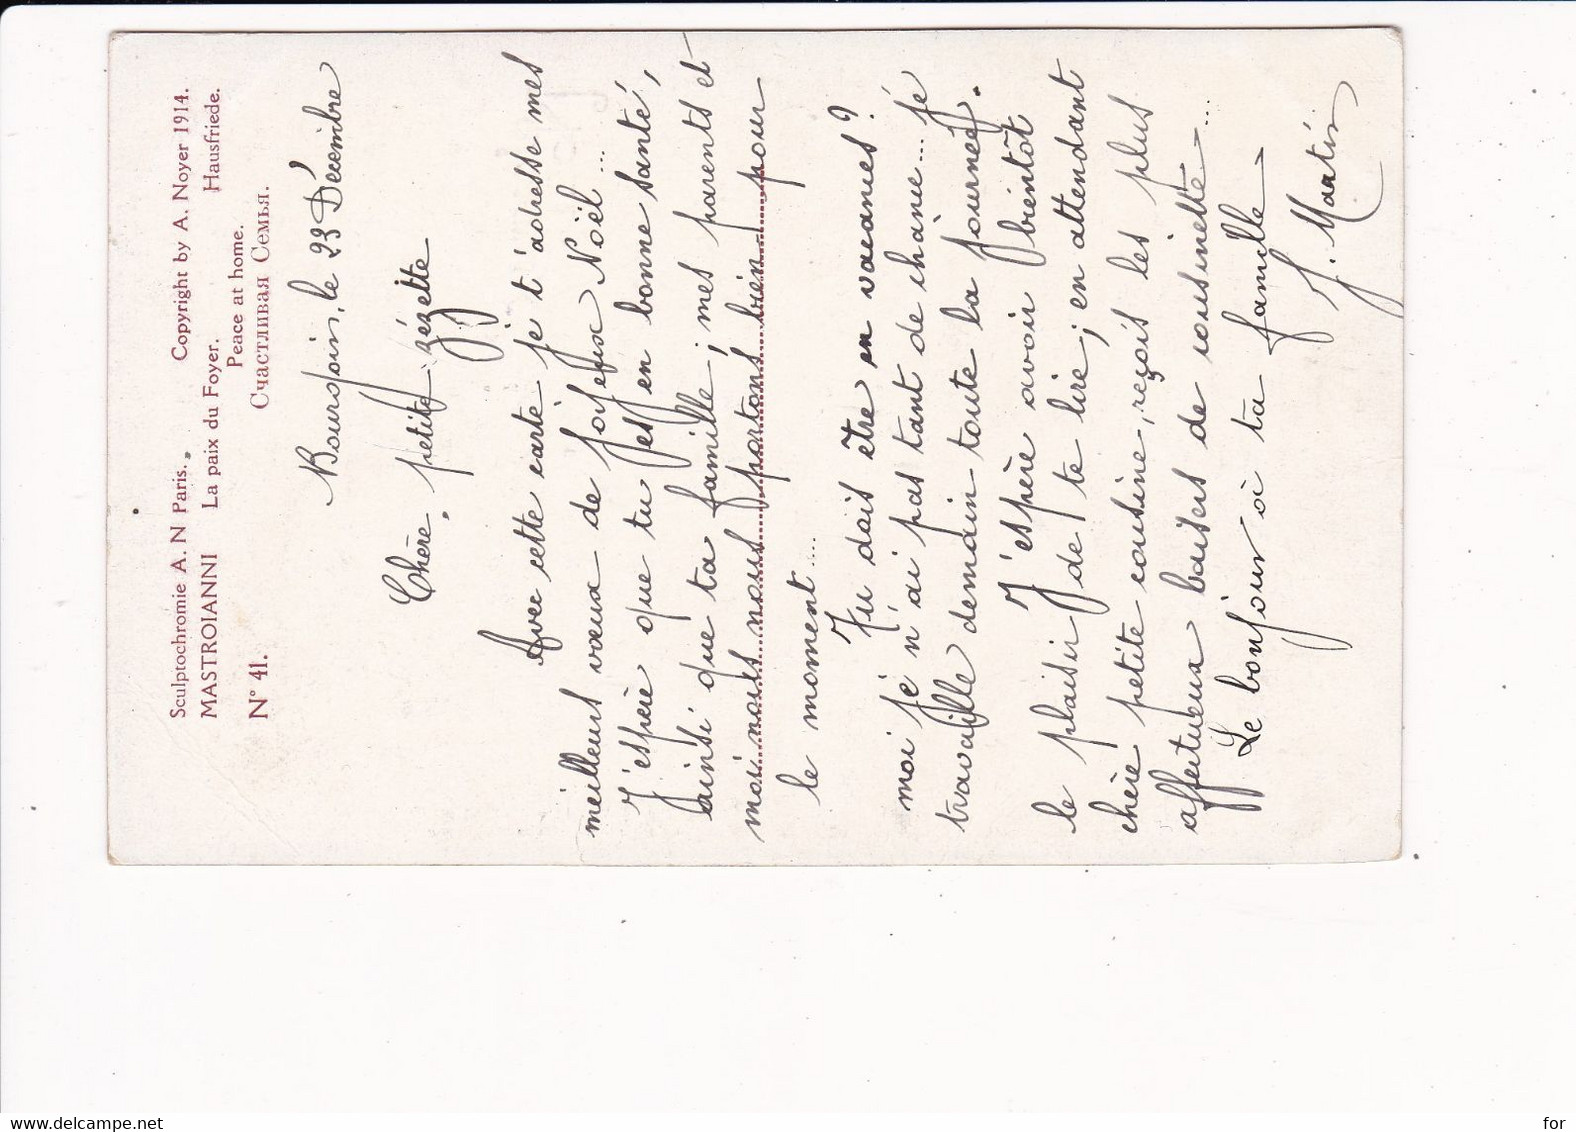 Sculptochromie A. N Paris. Copyright by A. Noyer 1914.
MASTROIANNI La paix du Foyer. Hausfriede.
Peace at home.
N° 41. Счастливая Семья.
le 23 Décembre
Chère, petite zézette
Avec cette carte je t'adresse mes
meilleurs vœux de joyeux Noël...
J'espère que tu es en bonne santé,
ainsi que ta famille; mes parents et
moi nous nous portons bien pour
le moment...
Tu dois être en vacances?
moi je n'ai pas tant de chance... je
travaille demain toute la journée.
J'espère avoir bientôt
le plaisir de te lire; en attendant
chère petite cousine, reçois les plus
affectueux baisers de cousinette...
Le bonjour à ta famille
J. Martin
www.delcampe.net
for